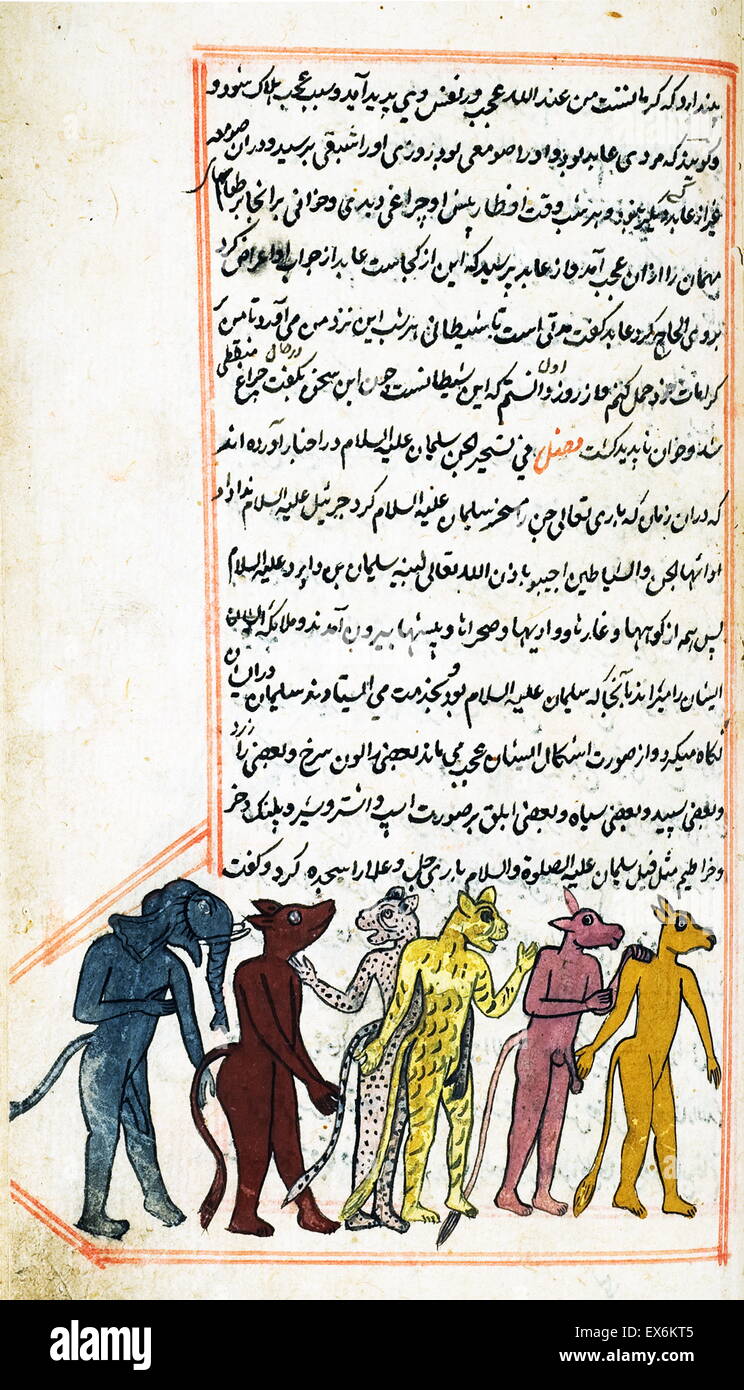 پندارد که کرمالنست من عند الله عجب در نفس وی پدید آید و سبب عجب هلاک شود و
و کویند که مردی عابد بود و او را صومعی بود روزی او را شبقی برسید و در آن صومعه
غیر از عابد نبود و هر شب وقت افطار پیش او چراغی دیدی و خوانی بر آنجا پر طعام
مهمان را از آن عجب آمد و از عابد پرسید که این از کجاست عابد از جواب او اعراض کرد
بروی الحاح کرد عابد کفت مدتی است تا شیطانی هر شب این نزد من می آورد تا من
کرامات خود حمل کنم و از روز اول دانستم که این شیطانست چون این سخن بکفت در حال چراغ
شد و خوان ناپدید کشت فصل فی تسخیر الجن سلیمان علیه السلام در اخبار آورده اند
که در آن زمان که باری تعالی جن را مسخر سلیمان علیه السلام کرد جبرئیل علیه السلام ندا داد
ایها الجن والشیاطین اجیبوا باذن الله تعالی لنبیه سلیمان بن داود علیه السلام
پس همه از کوهها و غارها و وادیها و صحراها و بیشها بیرون آمدند و ملایکه
ایشان را میراندند تا آنجا که سلیمان علیه السلام بود و بخدمت می ایستادند سلیمان در ایشان
نکاه میکرد و از صورت اشکال ایشان عجب می ماند بعضی را لون سرخ و بعضی را زرد
و بعضی سپید و بعضی سیاه و بعضی ابلق بر صورت اسپ و اشتر و شیر و پلنک و خر
و خراطیم مثل فیل سلیمان علیه الصلوة والسلام باری جل و علا را سجده کرد و کفت
alamy
EX6KT5
www.alamy.com